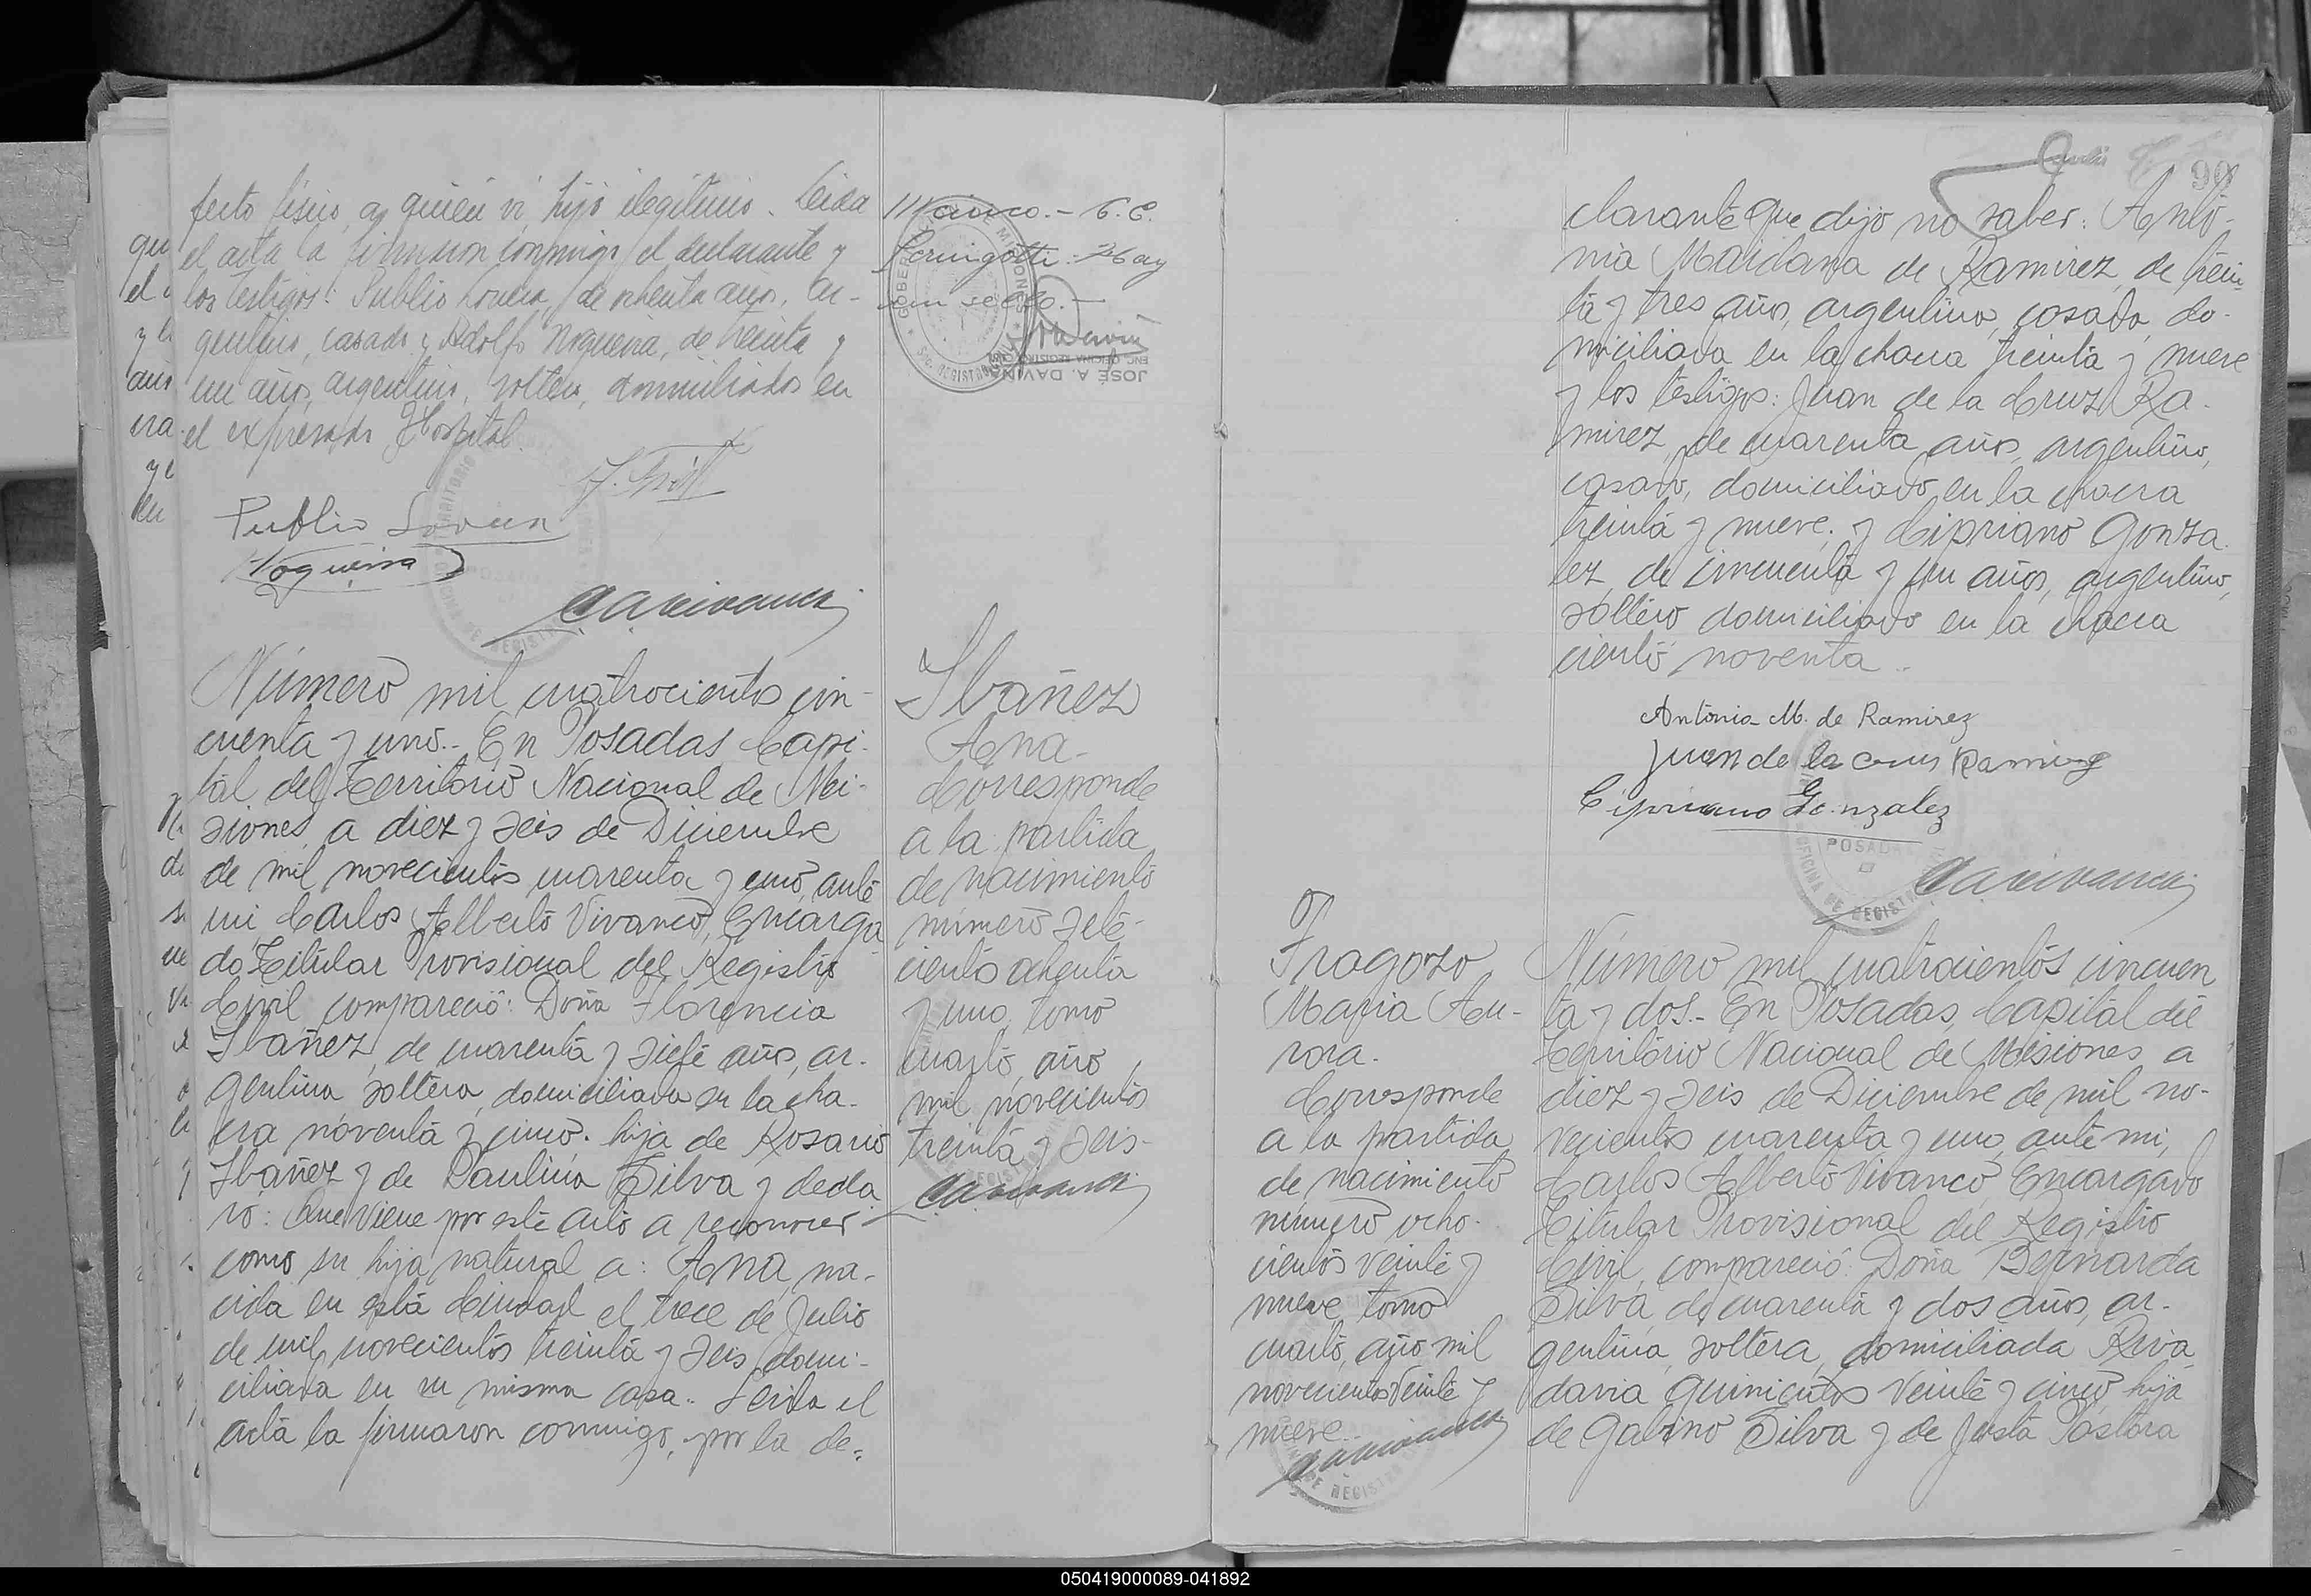 fecto físico, a quien vi, hijo ilegitimo. Leida
el acta la firmaron conmigo, el declarante y
los testigos: Publio Lovera, de ochenta años, ar-
gentino, casado y Adolfo Nogueira, de treinta y
un años, argentino, soltero, domiciliados en
el expresado Hospital.
Publio
Nogueira
Número mil cuatrocientos cin-
cuenta y uno.- En Posadas Capi-
tal del Territorio Nacional de Mi-
siones, a diez y seis de Diciembre
de mil novecientos cuarenta y uno, ante
mi Carlos Alberto Vivanco, Encarga
do Titular Provisional del Registro
Civil, compareció: Doña Florencia
Ibañez, de cuarenta y siete años, ar-
gentina soltera, domiciliada en la cha-
cra noventa y cinco. hija de Rosario
Ibañez y de Paulina Silva y decla
ró: Que viene por este acto a reconocer
como su hija natural a: Ana, na-
cida en esta Ciudad el trece de Julio
de mil novecientos treinta y seis, domi-
ciliada en su misma casa.- Leida el
acta la firmaron conmigo, por la de-
- 6. C.
un sello.-
JOSÉ A. DAVIÑA
ENC. OFICINA REGISTRO
Ibañez
Ana-
Corresponde
a la partida
de nacimiento
número sete-
ciento ochenta
y uno, tomo
cuarto, año
mil novecientos
treinta y seis-
90
clarante que dijo no saber: Anto-
nia Maidana de Ramirez, de trein
ta y tres años, argentina, casada, do-
miciliada en la chacra treinta y nueve
y los testigos: Juan de la Cruz Ra-
mirez, de cuarenta años, argentino,
casado, domiciliado en la chacra
treinta y nueve; y Cipriano Gonza
lez, de cincuenta y un años, argentino,
soltero domiciliado en la chacra
ciento noventa..
Antonia M. de Ramirez
Juan de la crus Ramirez
Cipriano Gonzalez
POSADAS
OFICINA DE REGISTRO
Fragozo
Maria Au-
rora.
Corresponde
a la partida
de nacimiento
número ocho-
cientos veinte y
nueve tomo
cuarto, año mil
novecientos veinte y
nueve..
Número mil cuatrocientos cincuen
ta y dos.- En Posadas, Capital del
Territorio Nacional de Misiones a
diez y seis de Diciembre de mil no-
vecientos cuarenta y uno, ante mi,
Carlos Alberto Vivanco, Encargado
Titular Provisional del Registro
Civil, compareció: Doña Bernarda
Silva, de cuarenta y dos años, ar-
gentina, soltera, domiciliada Riva
davia quinientos veinte y cinco, hija
de Gabino Silva y de Justa Pastora
050419000089-041892